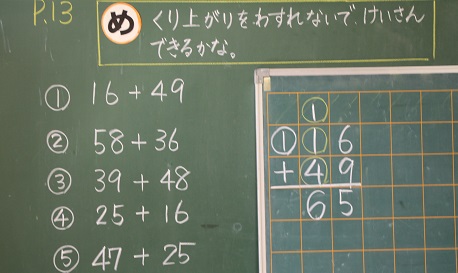 P.13
め くり上がりをわすれないで、けいさん
できるかな。
① 16+49
② 58+36
③ 39+48
④ 25+16
⑤ 47+25
1
① 16
+49
65